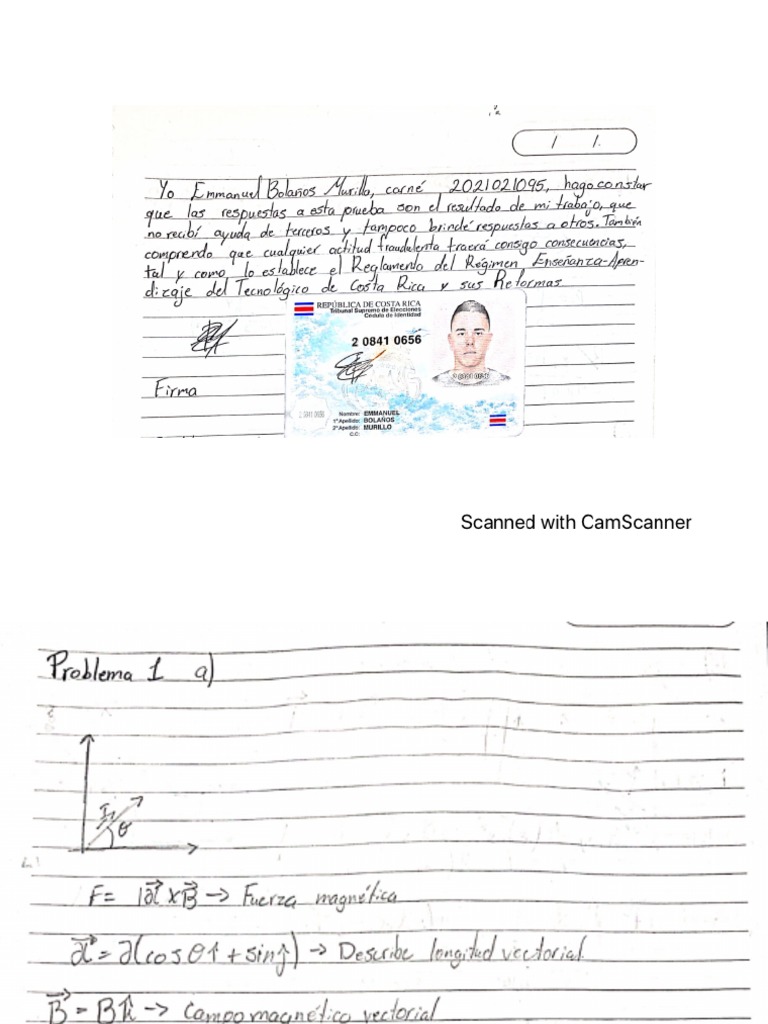 / /.
Yo Emmanuel Bolaños Murillo, carné 2021021095, hago constar
que las respuestas a esta prueba son el resultado de mi trabajo, que
no recibí ayuda de terceros y tampoco brindé respuestas a otros. También
comprendo que cualquier actitud fraudelenta traerá consigo consecuencias,
tal y como lo establece el Reglamento del Régimen Enseñanza-Apren-
dizaje del Tecnológico de Costa Rica y sus Reformas
REPÚBLICA DE COSTA RICA
Tribunal Supremo de Elecciones
Cédula de Identidad
2 0841 0656
Firma
Nombre: EMMANUEL
1° Apellido: BOLAÑOS
2° Apellido: MURILLO
C.C:
Scanned with CamScanner
Problema 1 a)
I
θ
F = I∂l⃗ × B⃗ → Fuerza magnética
∂l⃗ = ∂(cos θ î + sin ĵ) → Describe longitud vectorial
B⃗ = B k̂ → Campo magnético vectorial